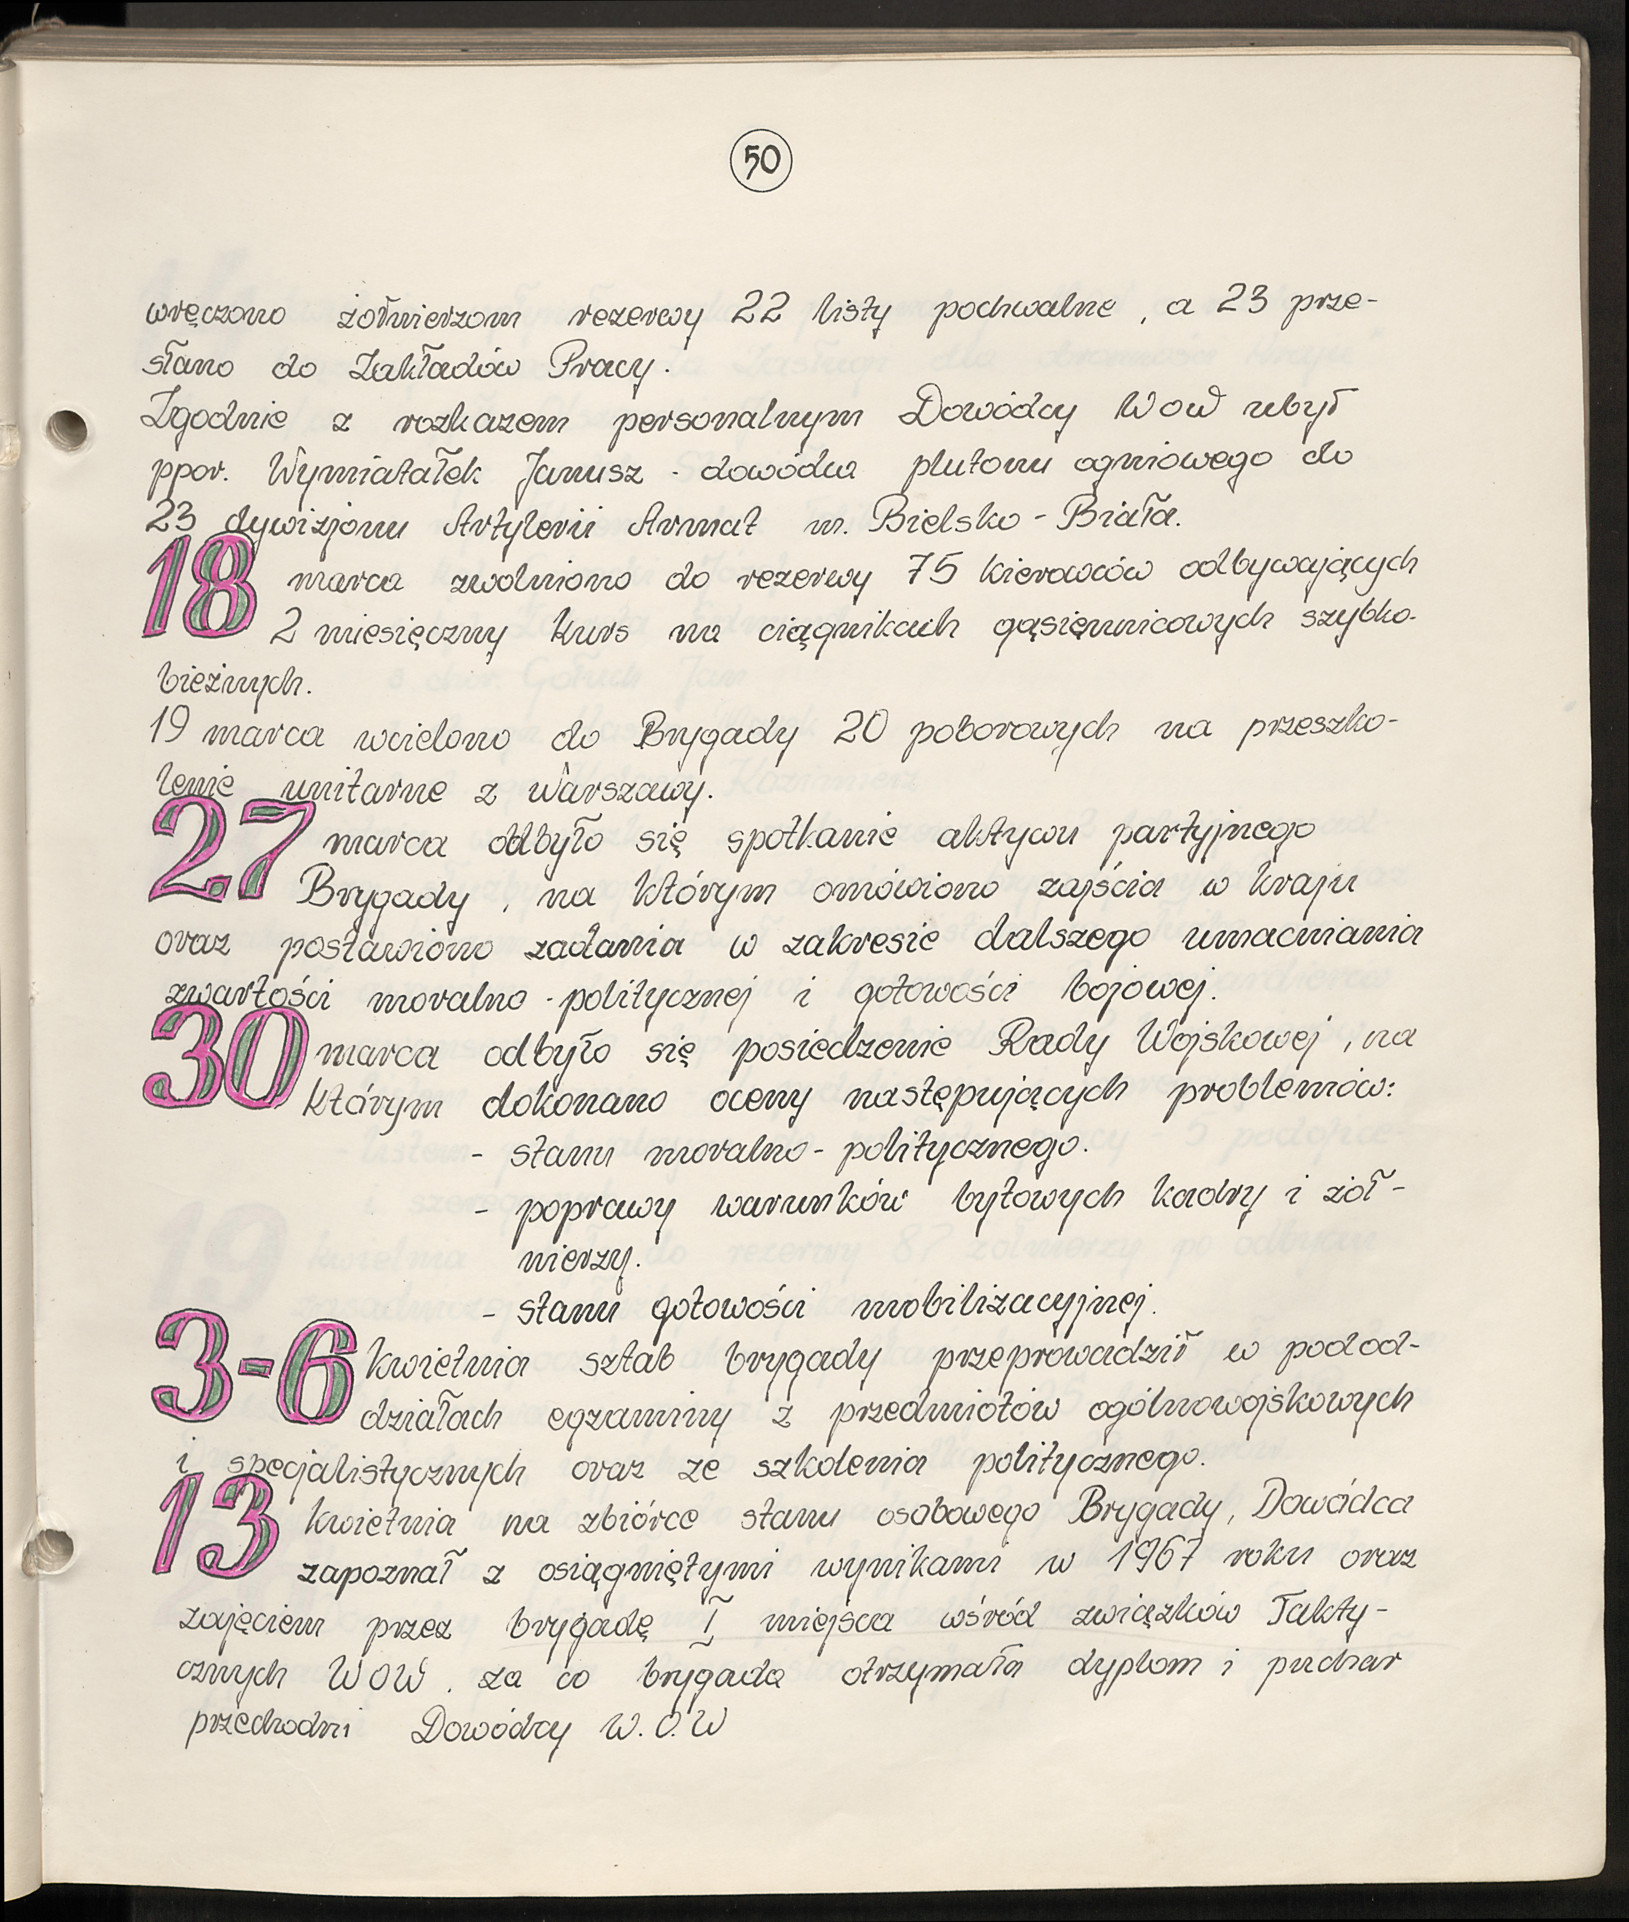 50
wręczono żołnierzom rezerwy 22 listy pochwalne, a 23 prze-
słano do Zakładów Pracy.
Zgodnie z rozkazem personalnym Dowódcy WOW ubył
ppor. Wymiatałek Janusz - dowódca plutonu ogniowego do
23 dywizjonu Artylerii Armat m. Bielsko - Biała.
18 marca zwolniono do rezerwy 75 kierowców odbywających
2 miesięczny kurs na ciągnikach gąsiennicowych szybko-
bieżnych.
19 marca wcielono do Brygady 20 poborowych na przeszko-
lenie unitarne z Warszawy.
27 marca odbyło się spotkanie aktywu partyjnego
Brygady, na którym omówiono zajścia w kraju
oraz postawiono zadania w zakresie dalszego umacniania
zwartości moralno - politycznej i gotowości bojowej.
30 marca odbyło się posiedzenie Rady Wojskowej, na
którym dokonano oceny następujących problemów:
- stanu moralno - politycznego.
- poprawy warunków bytowych kadry i żoł-
nierzy.
- stanu gotowości mobilizacyjnej.
3-6 kwietnia sztab brygady przeprowadził w podod-
działach egzaminy z przedmiotów ogólnowojskowych
i specjalistycznych oraz ze szkolenia politycznego.
13 kwietnia na zbiórce stanu osobowego Brygady, Dowódca
zapoznał z osiągniętymi wynikami w 1967 roku oraz
zajęciem przez brygadę I miejsca wśród związków Takty-
cznych WOW. za co brygada otrzymała dyplom i puchar
przechodni Dowódcy W.O.W